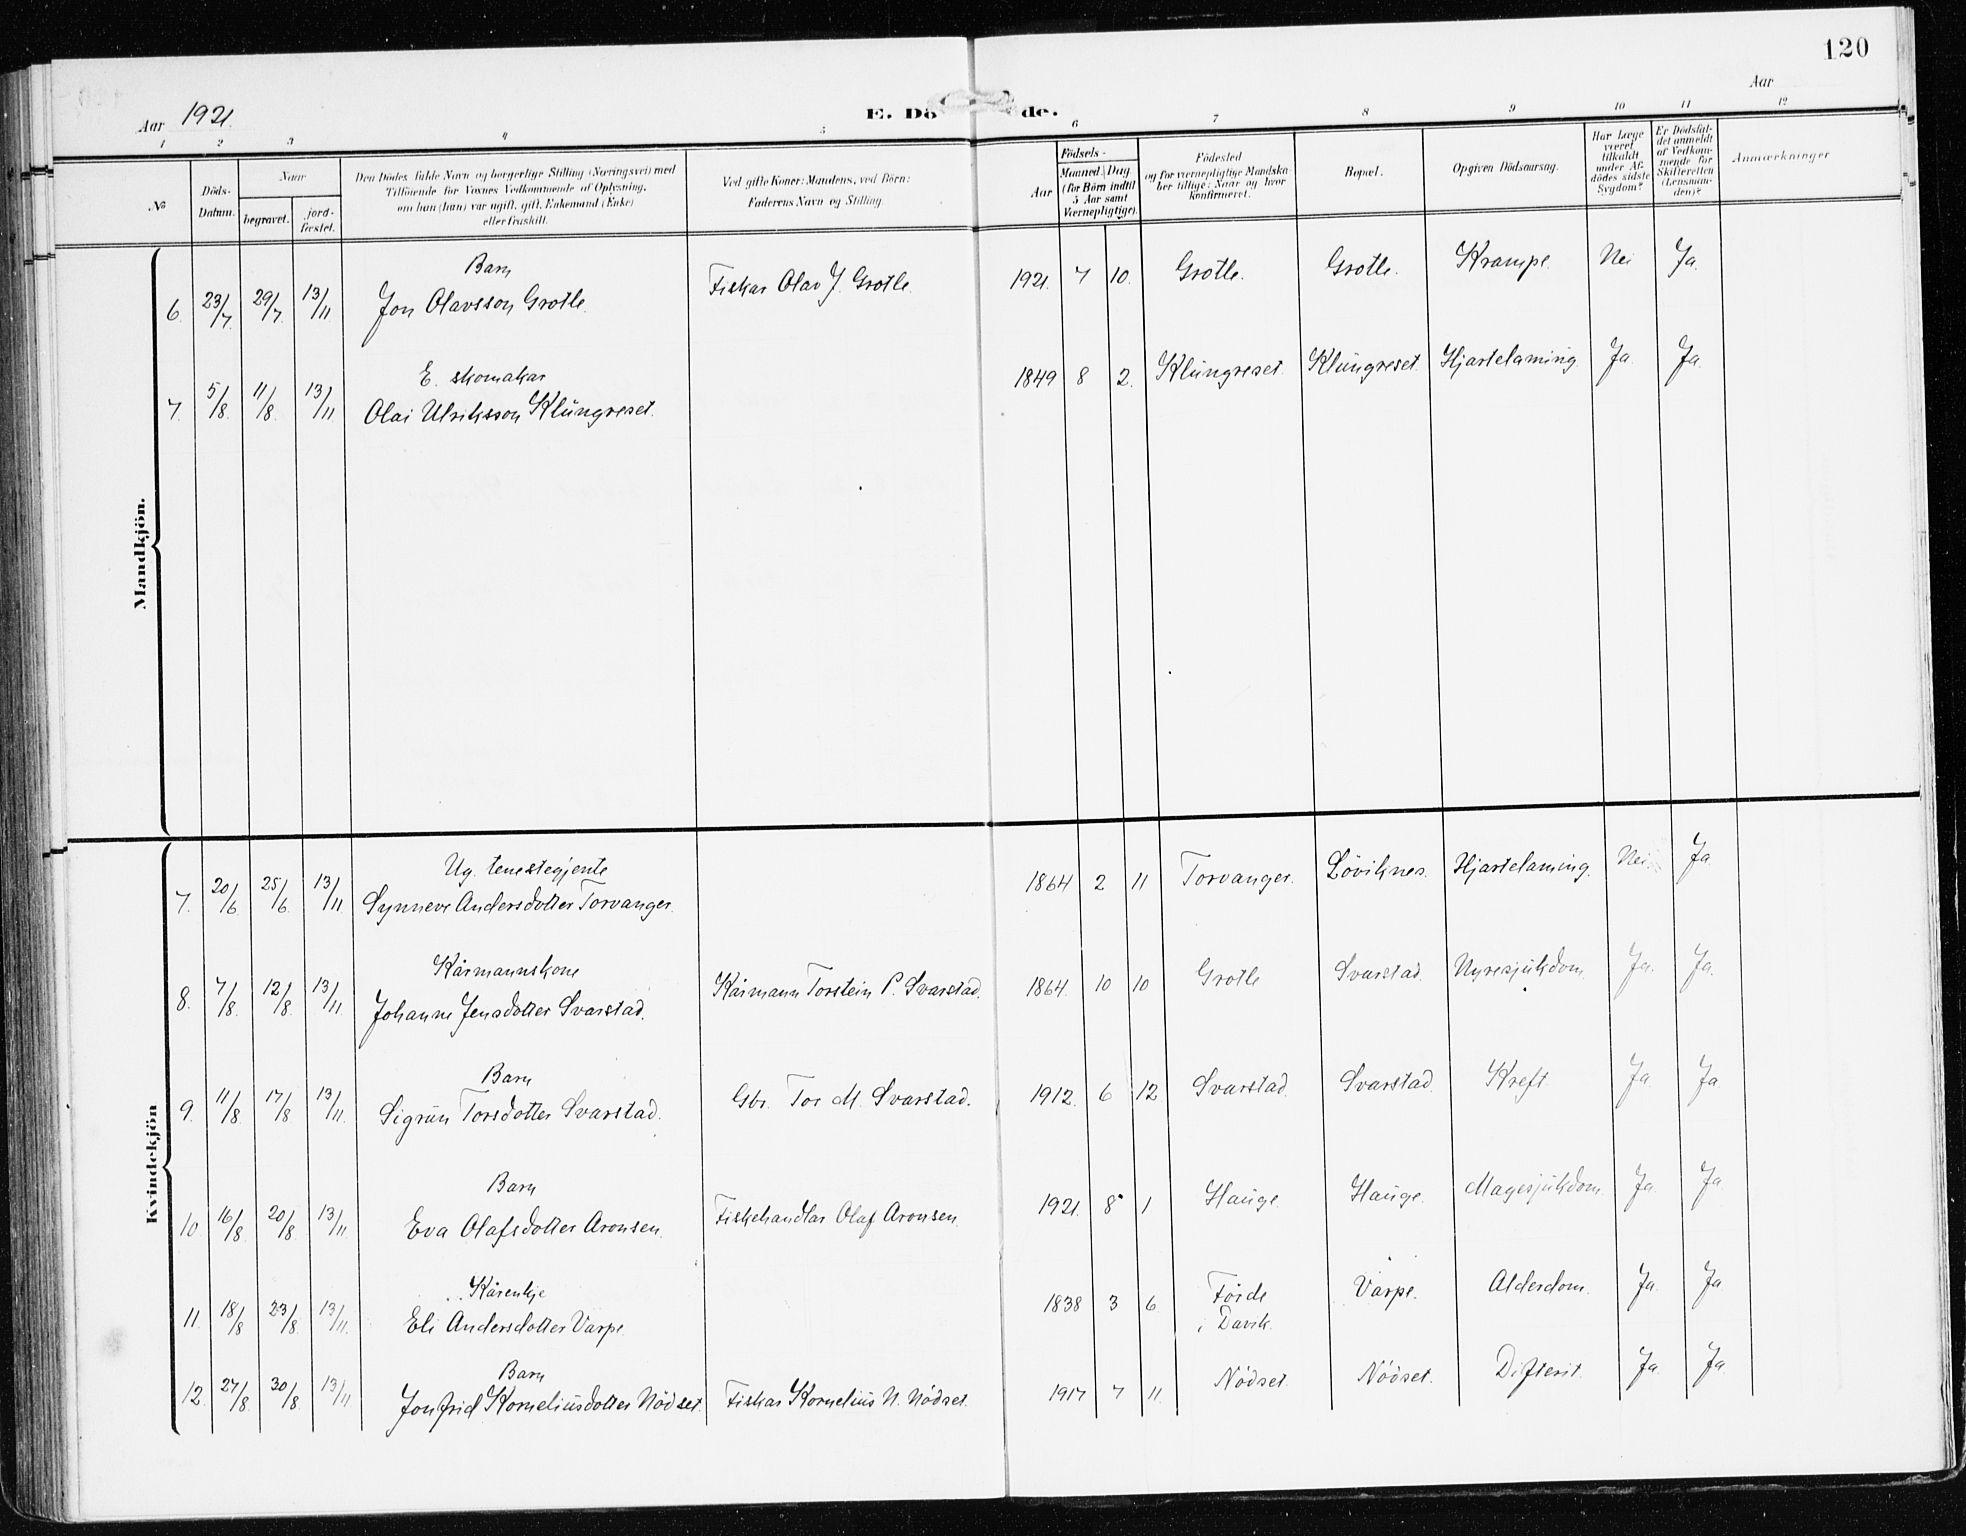 120
Aar 1921.
E. Dö de.
Aar
1 2 3 4 5 6 7 8 9 10 11 12
No
Döds-Datum.
Naar
begravet.
jord-fæstet.
Den Dödes fulde Navn og borgerlige Stilling (Næringsvei) med
Tilföiende for Voxnes Vedkommende af Oplysning,
om han (hun) var ugift, gift, Enkemand (Enke)
eller fraskilt.
Ved gifte Koner: Mandens, ved Börn:
Faderens Navn og Stilling.
Födsels-
Aar
Maaned. Dag.
(for Börn indtil
5 Aar samt
Værnepligtige).
Födested
og for værnepligtige Mandska-
ber tillige: Naar og hvor
konfirmeret.
Bopæl.
Opgiven Dödsaarsag.
Har Læge
været
tilkaldt
under Af-
dödes sidste
Sygdom?
Er Dödsfal-
det anmeldt
af Vedkom-
mende for
Skifteretten
(Lensman-
den)?
Anmærkninger
Mandkjön.
Barn
6. 23/7. 29/7. 13/11 Jon Olavsson Grotle. Fiskar Olav J. Grotle. 1921. 7 10. Grotle. Grotle. Krampe. Nei Ja.
E. skomakar
7. 5/8. 11/8. 13/11 Olai Ulriksson Klungreset. 1849 8 2. Klungreset. Klungreset. Hjartelaming. Ja. Ja.
Kvindekjön
Ug. tenestegjente
7. 20/6 25/6. 13/11. Synneve Andersdotter Torvanger. 1864 2 11 Torvanger. Löviknes. Hjartelaming. Nei Ja.
Kårmannskone
8. 7/8. 12/8. 13/11. Johanne Jensdotter Svarstad. Kårmann Torstein P. Svarstad. 1864. 10 10 Grotle Svarstad. Nyresjukdom. Ja. Ja.
Barn
9. 11/8. 17/8. 13/11. Sigrun Torsdotter Svarstad. Gbr. Tor M. Svarstad. 1912. 6 12 Svarstad. Svarstad. Kreft. Ja Ja
Barn
10. 16/8. 20/8. 13/11. Eva Olafsdotter Aronsen. Fiskehandlar Olaf Aronsen. 1921. 8 1 Hauge. Hauge. Magesjukdom. Ja. Ja
Kårenkje
11. 18/8 23/8. 13/11. Eli Andersdotter Varpe. 1838 3 6. Förde Varpe. Alderdom. Ja. Ja.
i Davik.
Barn
12. 27/8. 30/8. 13/11 Jonfrid Korneliusdotter Nödset. Fiskar Kornelius N. Nödset. 1917 7 11. Nödset. Nödset. Difterit. Ja. Ja.